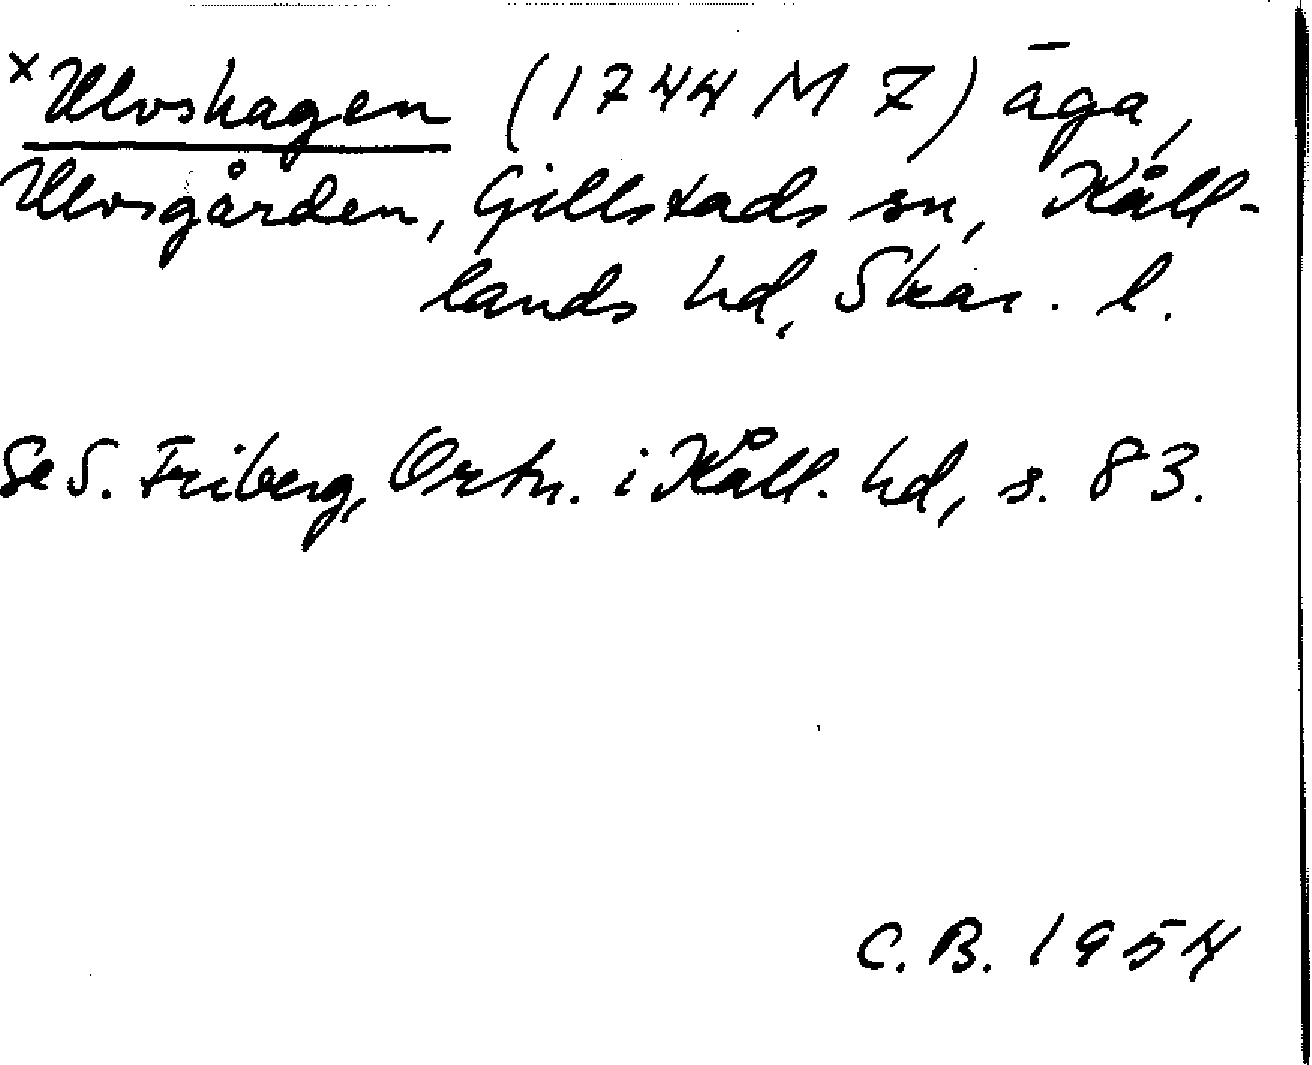 × Ulvshagen (1744 M 7) äga,
Ulvsgården, Gillstads sn, Kåll-
lands hd, Skar. l.
Se S. Friberg, Ortn. i Kåll. hd, s. 83.
C. B. 1954